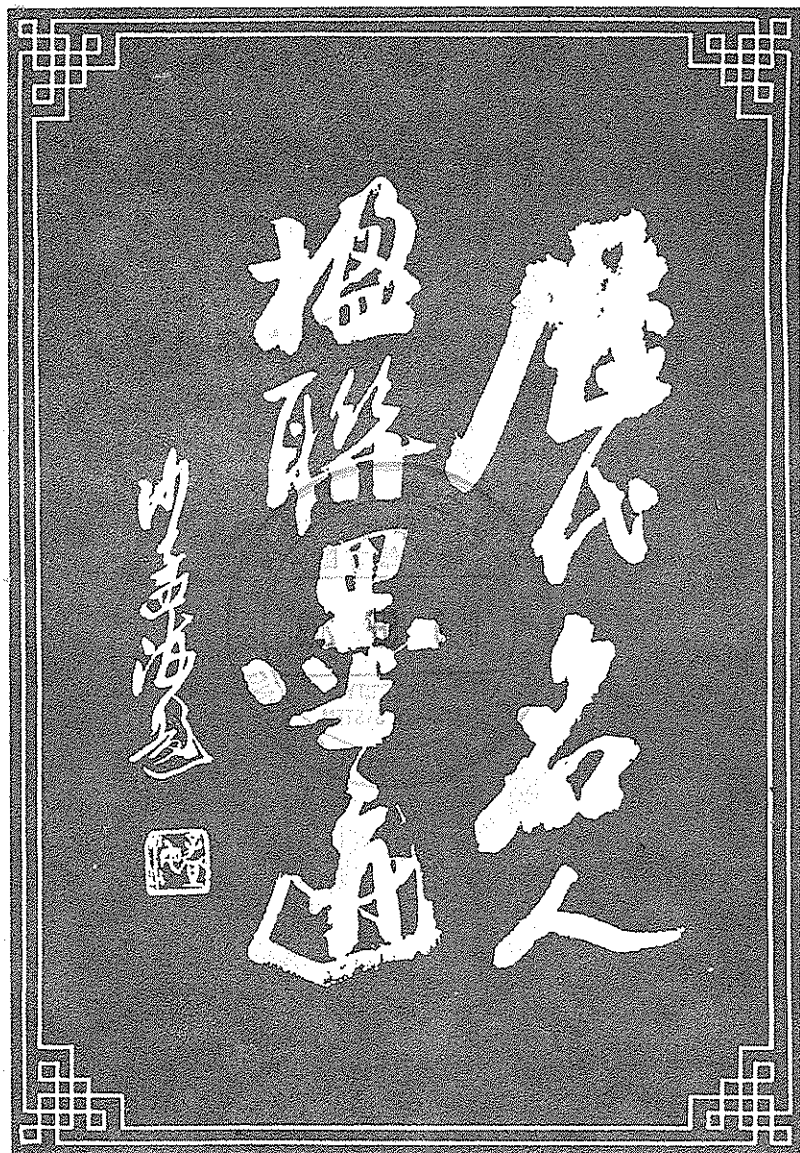 歷代名人
楹聯墨迹
沙孟海題